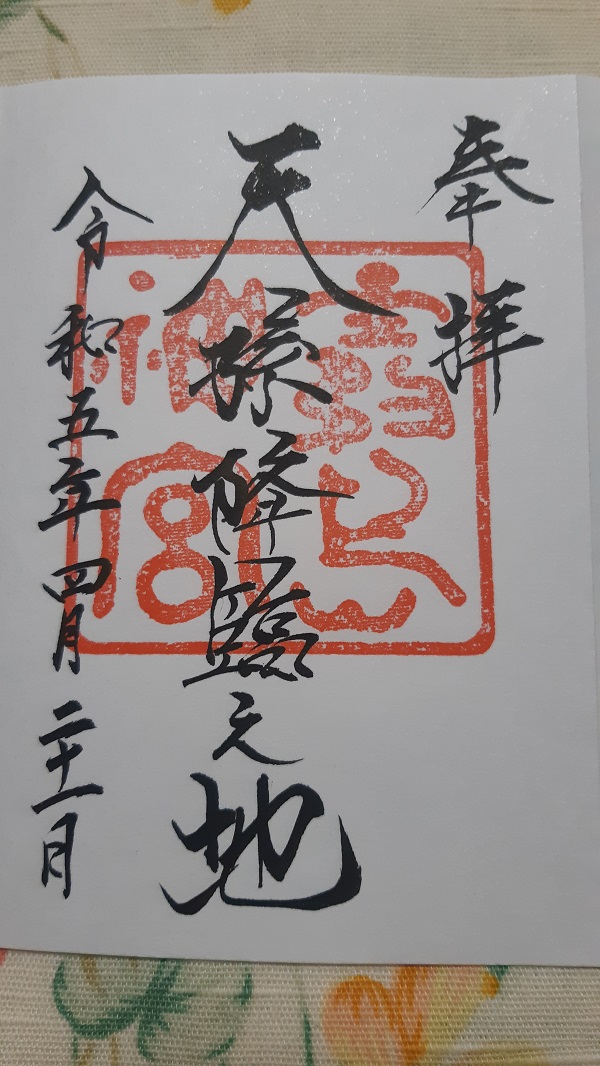 奉拝
天孫降臨之地
令和五年四月二十一日
霧島
神宮